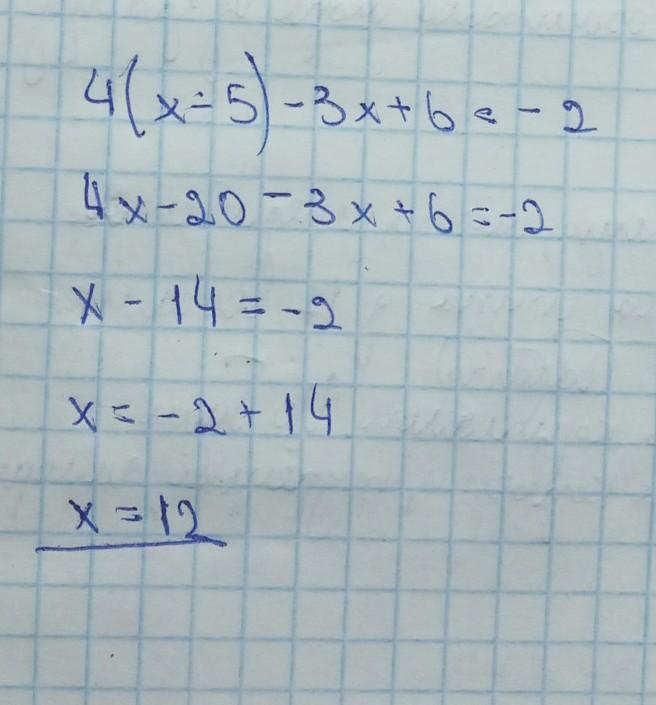 4(x-5)-3x+6=-2
4x-20-3x+6=-2
x-14=-2
x=-2+14
x=12